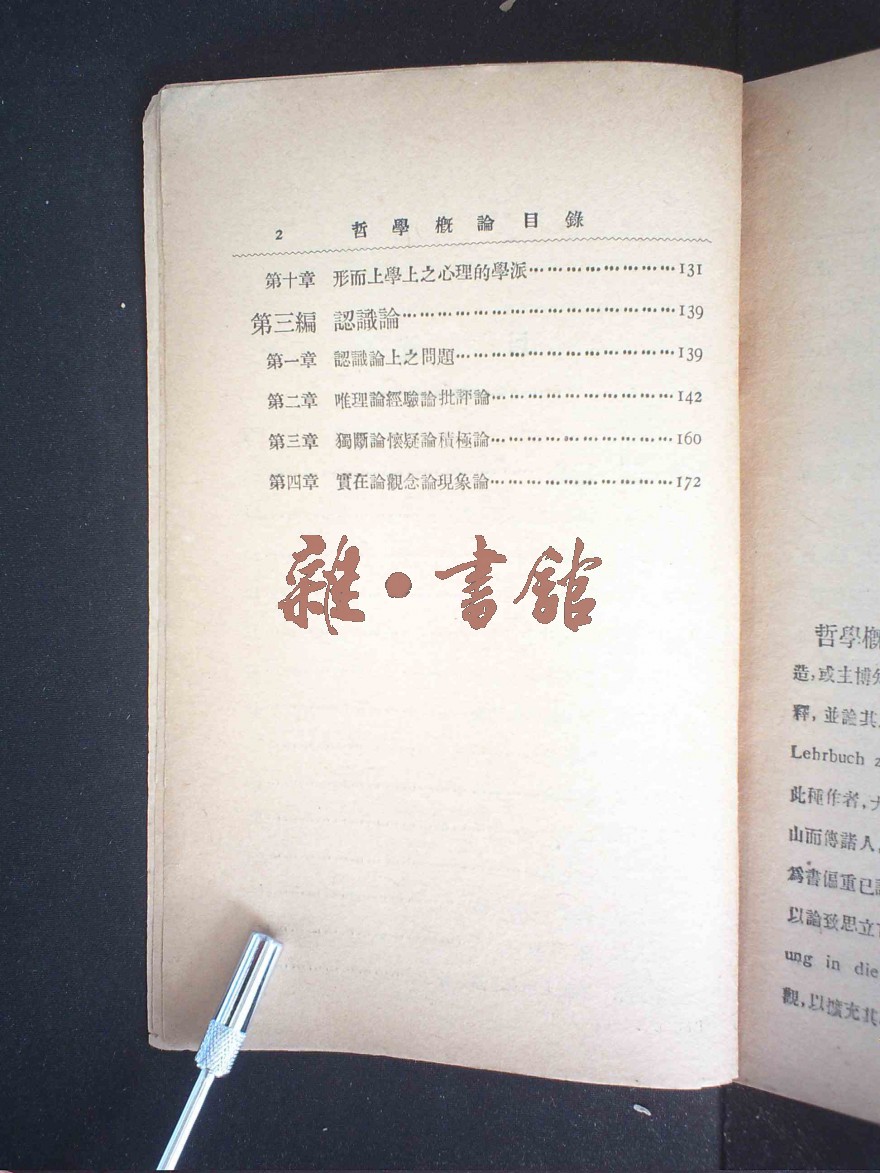 2 哲學概論目錄
第十章 形而上學上之心理的學派…………………131
第三編 認識論…………………139
第一章 認識論上之問題…………………139
第二章 唯理論經驗論批評論…………………142
第三章 獨斷論懷疑論積極論…………………160
第四章 實在論觀念論現象論…………………172
雜·書館
哲學概
造,或主博
釋,並論其
Lehrbuch
此種作者,
山而傳諸人,
爲書偏重已
以論致思立
ung in die
觀,以擴充其